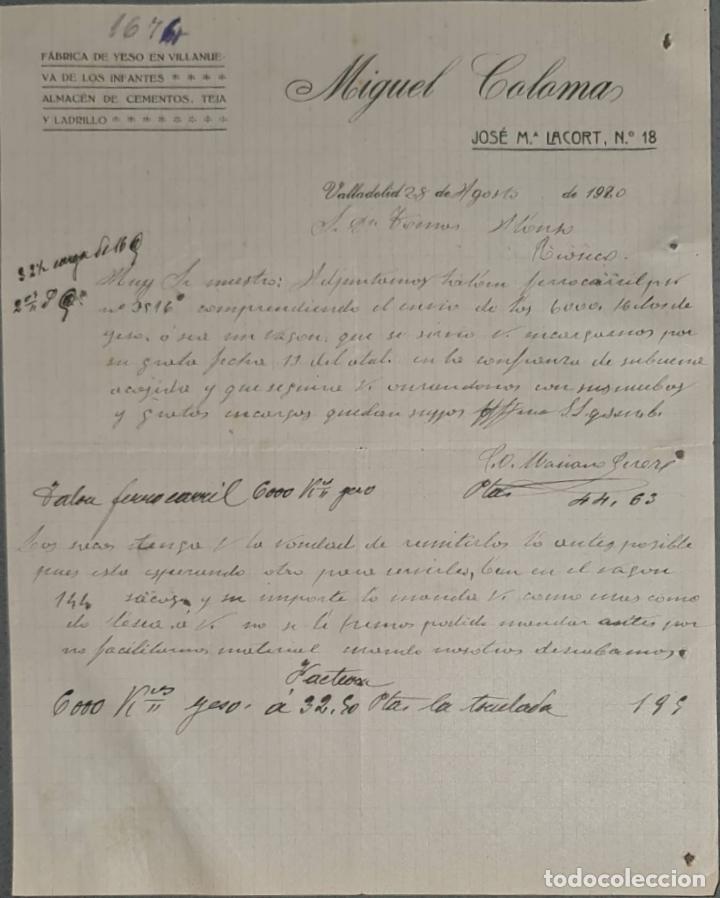 1674
FÁBRICA DE YESO EN VILLANUE-
VA DE LOS INFANTES * * * *
ALMACÉN DE CEMENTOS, TEJA
Y LADRILLO * * * * * * * *
Miguel Coloma
JOSÉ M.ª LACORT, N.º 18
Valladolid 28 de Agosto de 1920
S. Dn Tomas Alonso
Rioseco.
Muy Sr nuestro: Adjuntamos talón ferrocarril pv
nº 3516 comprendiendo el envio de los 6000 Kilos de
yeso, ó sea un vagon, que se sirvió V. encargarnos por
su grata fecha 13 del atal. en la confianza de su buena
acojida y que seguira V. onrandonos con sus nuebos
y gratos encargos quedan suyos
P.O. Mariano
Talon ferrocarril 6000 Ks yeso Ptas 44,63
Los sacos tenga V la vondad de remitirlos lo antes posible
pues esta esperando otro para serbirles, ban en el vagon
144 sacos y su importe lo manda V. como
á V. no se le hemos podido mandar antes por
no facilitarnos material cuando nosotros deseabamos.
Factura
6000 Kilos yeso á 32,50 Ptas la tonelada 195
todocoleccion